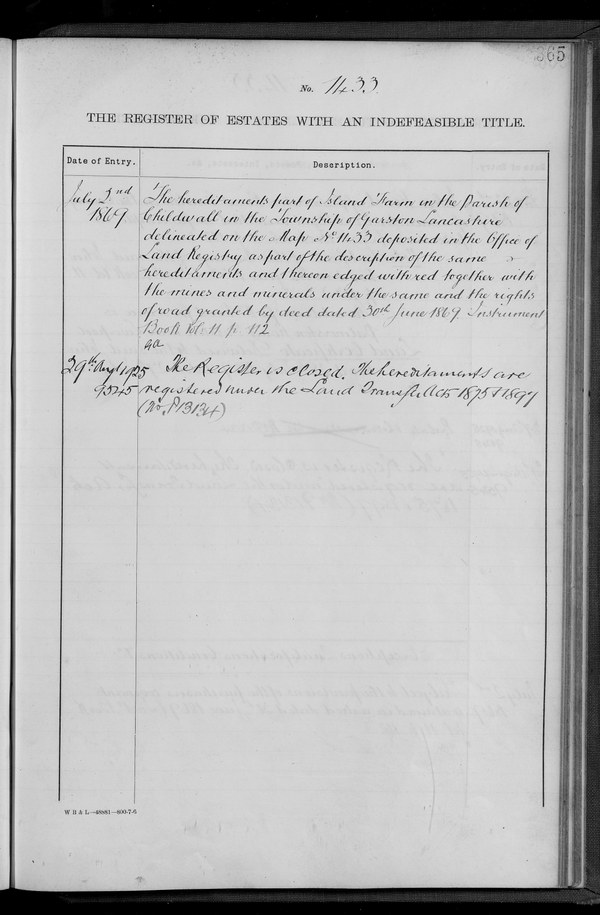 365
No. 1433
THE REGISTER OF ESTATES WITH AN INDEFEASIBLE TITLE.
Date of Entry.
Description.
July 2nd
1869
The hereditaments part of Island Farm in the Parish of
Childwall in the Township of Garston Lancashire
delineated on the Map No 1433 deposited in the Office of
Land Registry as part of the description of the same
hereditaments and thereon edged with red together with
the mines and minerals under the same and the rights
of road granted by deed dated 30th June 1869. Instrument
Book Vol. 11 p. 112
29th Augt 1925
The Register is closed. The hereditaments are
registered under the Land Transfer Acts 1875 & 1897
(No. P13134)
W B & L—48881—400-7-6